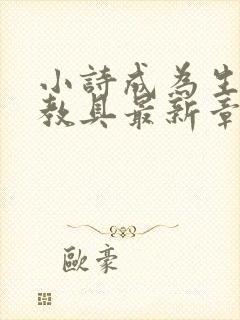 小詩成為生
教具最新章
歐豪